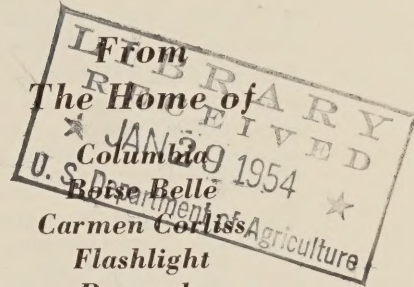 From
The Home of
Columbia
Boise Belle
Carmen Corliss,
Flashlight
LIBRARY
RECEIVED
★ JAN 29 1954 ★
U. S. Department of Agriculture